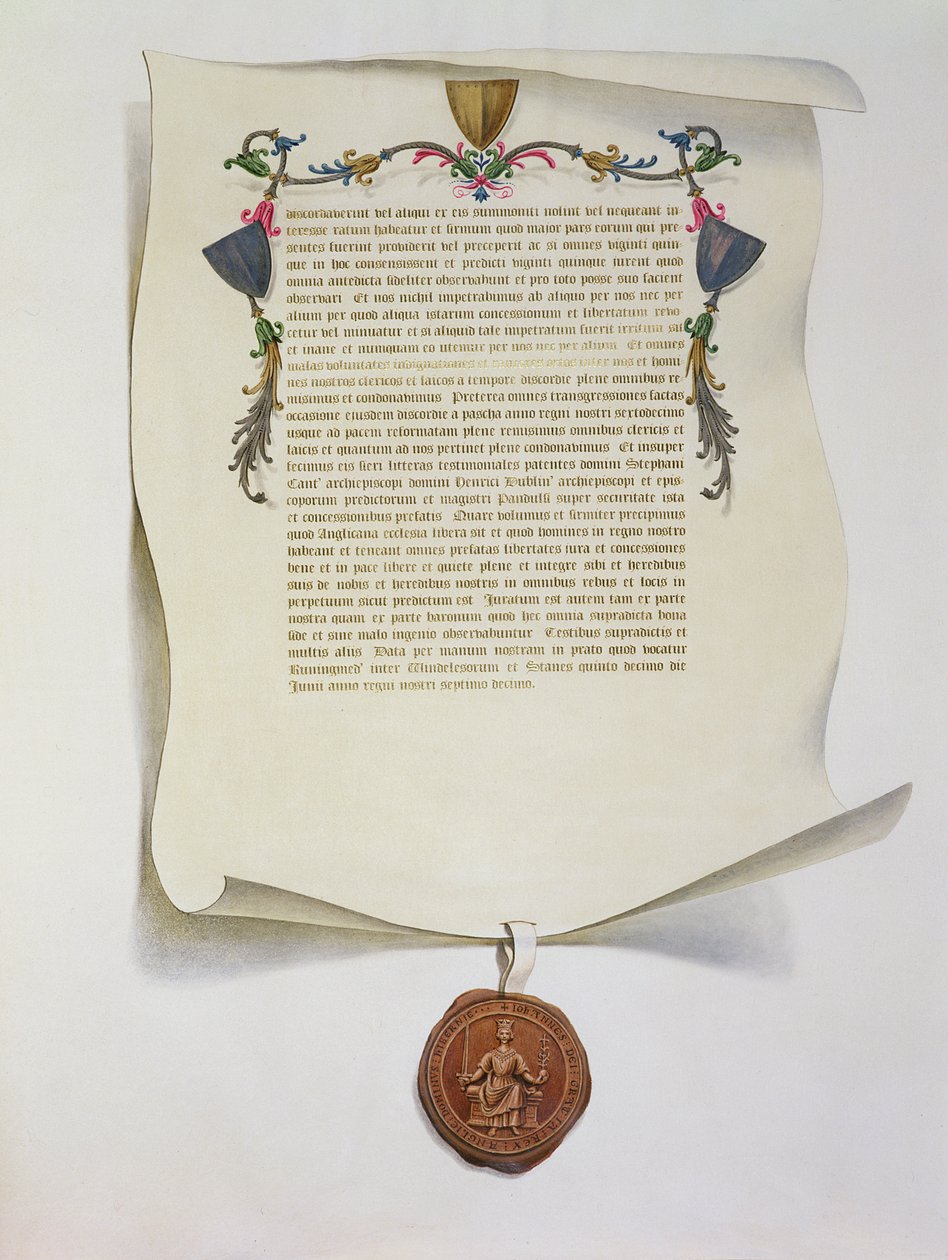 discordaverint vel aliqui ex eis summoniti nolint vel nequeant in-
teresse ratum habeatur et firmum quod major pars eorum qui pre-
sentes fuerint providerit vel preceperit ac si omnes viginti quin-
que in hoc consensissent et predicti viginti quinque jurent quod
omnia antedicta fideliter observabunt et pro toto posse suo facient
observari Et nos nichil impetrabimus ab aliquo per nos nec per
alium per quod aliqua istarum concessionum et libertatum revo-
cetur vel minuatur et si aliquid tale impetratum fuerit irritum sit
et inane et numquam eo utemur per nos nec per alium Et omnes
malas voluntates indignationes et rancores ortos inter nos et homi-
nes nostros clericos et laicos a tempore discordie plene omnibus re-
misimus et condonavimus Preterea omnes transgressiones factas
occasione ejusdem discordie a pascha anno regni nostri sextodecimo
usque ad pacem reformatam plene remisimus omnibus clericis et
laicis et quantum ad nos pertinet plene condonavimus Et insuper
fecimus eis fieri litteras testimoniales patentes domini Stephani
Cant' archiepiscopi domini Henrici Dublin' archiepiscopi et epis-
coporum predictorum et magistri Pandulfi super securitate ista
et concessionibus prefatis Quare volumus et firmiter precipimus
quod Anglicana ecclesia libera sit et quod homines in regno nostro
habeant et teneant omnes prefatas libertates jura et concessiones
bene et in pace libere et quiete plene et integre sibi et heredibus
suis de nobis et heredibus nostris in omnibus rebus et locis in
perpetuum sicut predictum est Juratum est autem tam ex parte
nostra quam ex parte baronum quod hec omnia supradicta bona
fide et sine malo ingenio observabuntur Testibus supradictis et
multis aliis Data per manum nostram in prato quod vocatur
Runingmed' inter Windelesorum et Stanes quinto decimo die
Junii anno regni nostri septimo decimo.
+ IOHANNES : DEI : GRATIA : REX : ANGLIE : DOMINVS : HIBERNIE ···